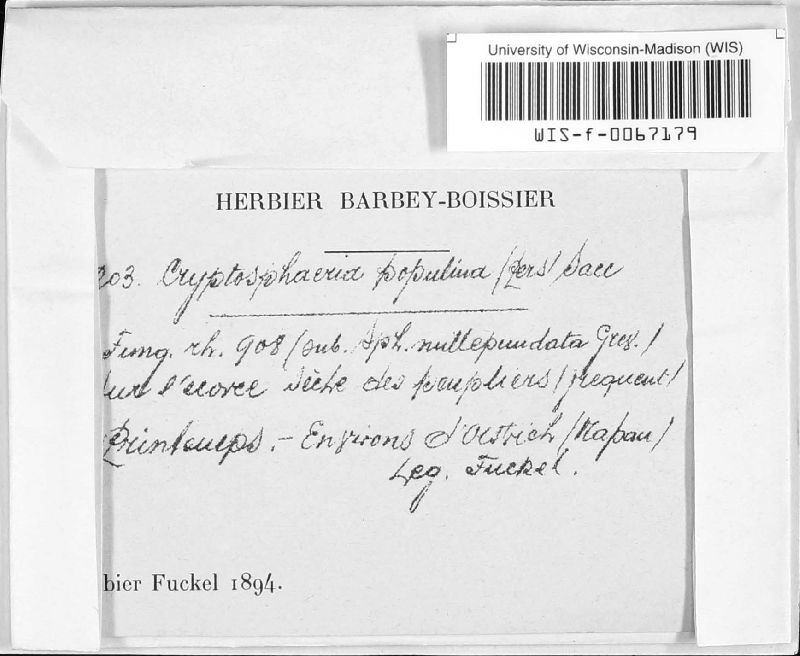 University of Wisconsin-Madison (WIS)
WIS-f-0067179
HERBIER BARBEY-BOISSIER
203. Cryptosphaeria populina (Pers) Sacc
Fung. rh. 908 (sub. Sph. millepunctata Grev.)
sur l'écorce sèche des peupliers (frequent)
Printemps. - Environs d'Oestrich (Nassau)
Leg. Fuckel.
bier Fuckel 1894.